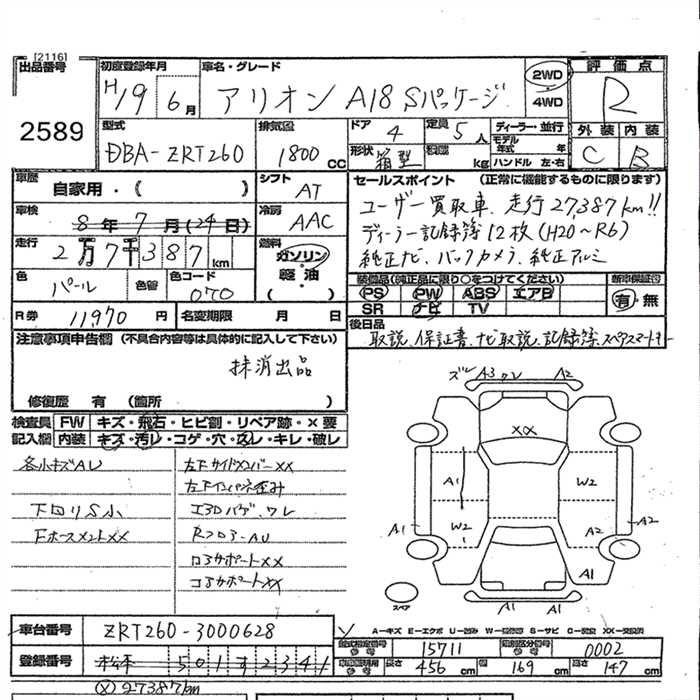 [2116]
出品番号
2589
初度登録年月
H19 6月
車名・グレード
アリオン A18 Sパッケージ
2WD
4WD
評価点
R
外装 内装
C B
型式
DBA-ZRT260
排気量
1800 CC
ドア
4
定員
5人
形状
箱型
積載
kg
ディーラー・並行
モデル年式 年
ハンドル 左・右
車歴
自家用・( )
シフト
AT
車検
8年7月(24日)
冷房
AAC
走行
2万7千387km
燃料
ガソリン
軽油
( )
色
パール
色替
色コード
070
R券
11,970円
名変期限 月 日
セールスポイント (正常に機能するものに限ります)
ユーザー買取車、走行27,387km!!
ディーラー記録簿12枚(H20~R6)
純正ナビ、バックカメラ、純正アルミ
装備品(純正品に限り○をつけてください)
PS PW ABS エアB
SR ナビ TV
新車保証書
有・無
後日品
取説、保証書、ナビ取説、記録簿、スペアスマートキー
注意事項申告欄 (不具合内容等は具体的に記入して下さい)
抹消出品
修復歴 有 (箇所 )
検査員記入欄
FW キズ・飛石・ヒビ割・リペア跡・×要
内装 キズ・汚レ・コゲ・穴・凹レ・キレ・破レ
各小キズAU
下回りS小
Fホースメント××
左Fサイドメンバー××
左Fインパネ歪み
エアロバゲ、ワレ
RフロアーAU
ロアサポート××
コアサポート××
ズレ A3 ワレ A2
××
A1 W2
W2 A2
A1 A2
A1
A1 A1
スペア
車台番号
ZRT260-3000628
登録番号
松本 501す2341
A=キズ E=エクボ U=凹み W=補修跡 S=サビ C=腐食 XX=交換済
型式指定番号
15711
類別区分番号
0002
長さ 456cm
幅 169cm
高さ 147cm
Ⓧ27387km